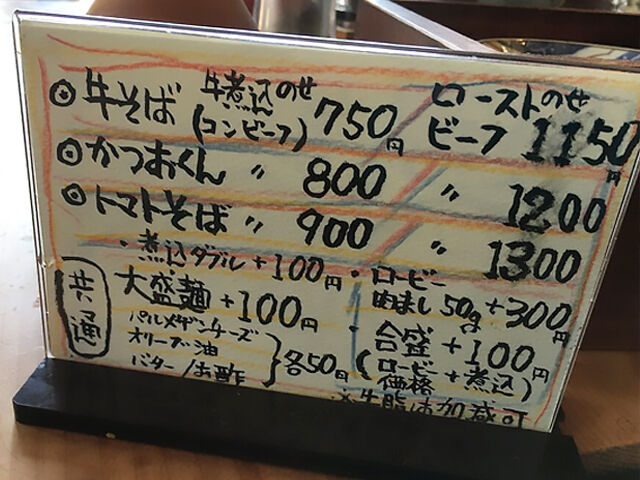 ◎牛そば 牛煮込のせ(コンビーフ) 750円 ローストビーフのせ 1150円
◎かつおくん 〃 800 〃 1200
◎トマトそば 〃 900 〃 1300
共通
・煮込ダブル+100円
大盛麺+100円
パルメザンチーズ
オリーブ油
バター/お酢
各50円
・ロービー
肉まし50g+300円
・合盛+100円
(ロービー価格+煮込)
※牛脂は加減可